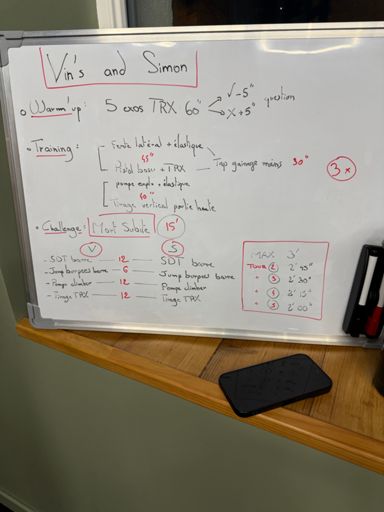 Vin's and Simon
Warm'up : 5 exos TRX 60" √ -5" question
x +5"
Training :
Fente latéral + élastique
45"
Pistol basu + TRX — Tap gainage mains 30" 3x
pompe explo + élastique
40"
Tirage vertical partie haute
Challenge : Mort Subite 15'
V S
- SDT barre — 12 — SDT barre
- Jump burpees barre — 6 — Jump burpees barre
- Pompe climber — 12 — Pompe climber
- Tirage TRX — 12 — Tirage TRX
MAX 3'
TOUR 2 2'45"
" 3 2'30"
" 4 2'15"
" 5 2'00"